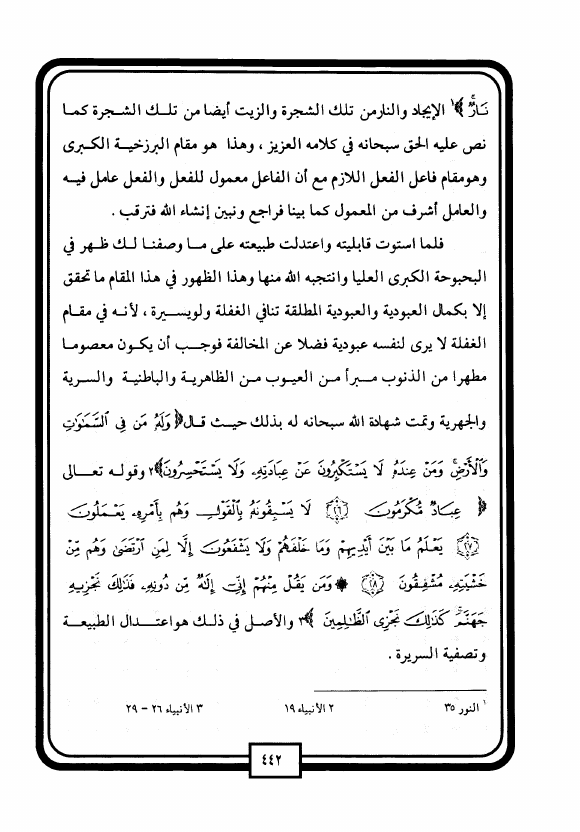 نَارٌ ﴾١ الإيجاد والنارمن تلك الشجرة والزيت أيضا من تلك الشجرة كما
نص عليه الحق سبحانه في كلامه العزيز ، وهذا هو مقام البرزخية الكبرى
وهومقام فاعل الفعل اللازم مع أن الفاعل معمول للفعل والفعل عامل فيه
والعامل أشرف من المعمول كما بينا فراجع ونبين إنشاء الله فترقب .
فلما استوت قابليته واعتدلت طبيعته على ما وصفنا لك ظهر في
البحبوحة الكبرى العليا وانتجبه الله منها وهذا الظهور في هذا المقام ما تحقق
إلا بكمال العبودية والعبودية المطلقة تنافي الغفلة ولويسيرة ، لأنه في مقام
الغفلة لا يرى لنفسه عبودية فضلا عن المخالفة فوجب أن يكون معصوما
مطهرا من الذنوب مبرأ من العيوب من الظاهرية والباطنية والسرية
والجهرية وتمت شهادة الله سبحانه له بذلك حيث قال﴿ وَلَهُ مَن فِي السَّمَٰوَٰتِ
وَالْأَرْضِ ۚ وَمَنْ عِندَهُ لَا يَسْتَكْبِرُونَ عَنْ عِبَادَتِهِ وَلَا يَسْتَحْسِرُونَ﴾٢ وقوله تعالى
﴿ عِبَادٌ مُّكْرَمُونَ ۝٢٦ لَا يَسْبِقُونَهُ بِالْقَوْلِ وَهُم بِأَمْرِهِ يَعْمَلُونَ
۝٢٧ يَعْلَمُ مَا بَيْنَ أَيْدِيهِمْ وَمَا خَلْفَهُمْ وَلَا يَشْفَعُونَ إِلَّا لِمَنِ ارْتَضَىٰ وَهُم مِّنْ
خَشْيَتِهِ مُشْفِقُونَ ۝٢٨ ۞ وَمَن يَقُلْ مِنْهُمْ إِنِّي إِلَٰهٌ مِّن دُونِهِ فَذَٰلِكَ نَجْزِيهِ
جَهَنَّمَ ۚ كَذَٰلِكَ نَجْزِي الظَّٰلِمِينَ ﴾٣ والأصل في ذلك هواعتدال الطبيعة
وتصفية السريرة .
١ النور ٣٥ ٢ الأنبياء ١٩ ٣ الأنبياء ٢٦ - ٢٩
٤٤٢